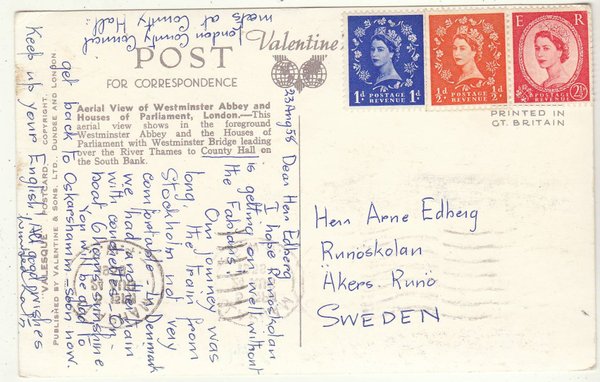 London County Council
meets at County Hall
POST
Valentine's
FOR CORRESPONDENCE
Aerial View of Westminster Abbey and
Houses of Parliament, London.—This
aerial view shows in the foreground
Westminster Abbey and the Houses of
Parliament with Westminster Bridge leading
over the River Thames to County Hall on
the South Bank.
"VALESQUE" POSTCARD COPYRIGHT
PUBLISHED BY VALENTINE & SONS, LTD., DUNDEE AND LONDON
1D POSTAGE REVENUE 1D
½D POSTAGE REVENUE ½D
E R
POSTAGE REVENUE 2½D
PRINTED IN
GT. BRITAIN
23 Aug 58 Dear Herr Edberg
I hope Runöskolan
is getting on well without
the Fabians!
Our journey was
long. The train from
Stockholm not very
comfortable. In Denmark
we had another train
with comfort. On
boat 6 hours sunshine.
You will be glad to
get back to Oskarshamn soon now.
Keep up your English! All good wishes
Herr Arne Edberg
Runöskolan
Åkers Runö
SWEDEN